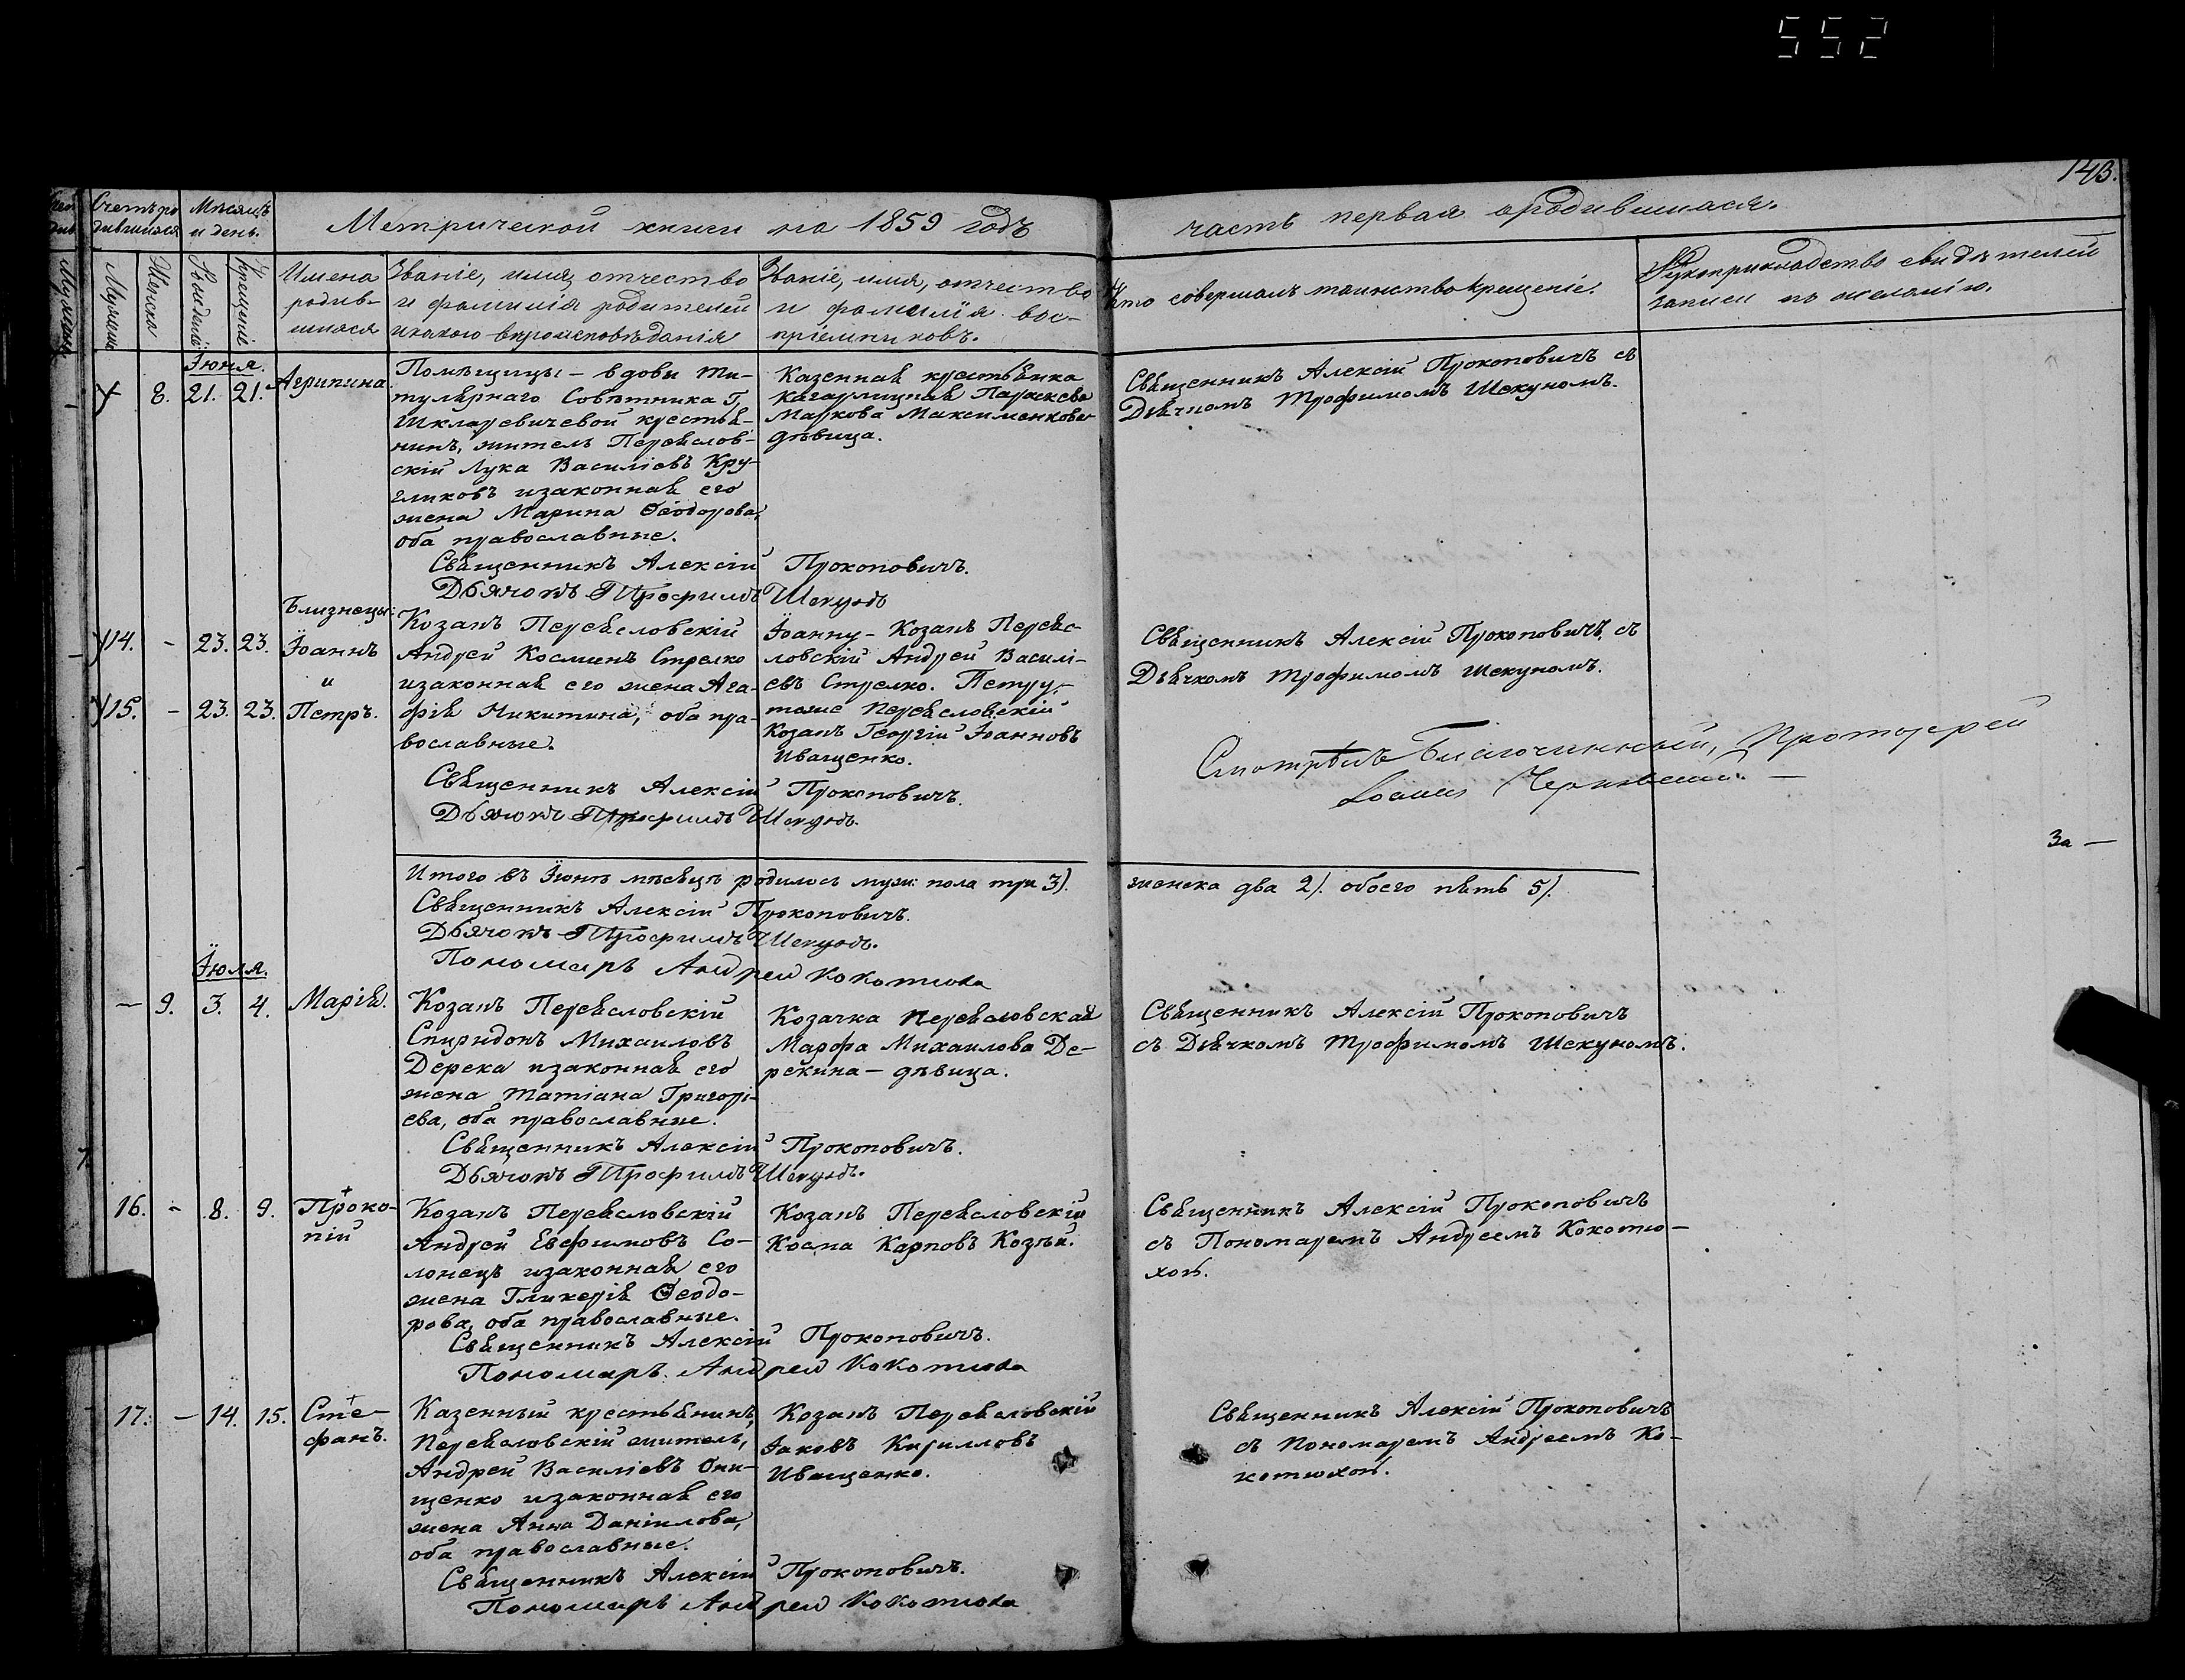 552
143.
Счетъ ро- Мѣсяцъ
дившихся и день.
Метрической книги на 1859 годъ
часть первая о родившихся.
Мужеска
Женска
Рожденія
Крещенія
Имена
родив-
шихся
Званіе, имя, отчество
и фамилія родителей
и какого вѣроисповѣданія
Званіе, имя, отчество
и фамилія вос-
пріемниковъ.
Кто совершалъ таинство крещенія.
Рукоприкладство свидѣтелей
записи по желанію.
Іюня.
8. 21. 21. Агрипина.
Помѣщицы – вдовы ти-
тулярнаго Совѣтника Г,
Шкляревичевой крестья-
нинъ, житель Переяслов-
скій Лука Василіевъ Кру-
гликовъ и законная его
жена Марина Ѳеодорова,
оба православные.
Казенная крестьянка
Кагарлицкая Параскева
Маркова Максименкова
дѣвица.
Священникъ Алексій Прокоповичъ съ
Дьячкомъ Трофимомъ Шекуномъ.
Священникъ Алексій Прокоповичъ.
Дьячокъ Трофимъ Шекунъ
Близнецы:
14. – 23. 23. Іоаннъ
и
15. – 23. 23. Петръ.
Козакъ Переясловскій
Андрей Косминъ Стрелко
и законная его жена Ага-
фія Никитина, оба пра-
вославные.
Іоанну – Козакъ Переяс-
ловскій Андрей Василі-
евъ Стрелко. Петру,–
тоже Переясловскій
Козакъ Георгій Іоанновъ
Иващенко.
Священникъ Алексій Прокоповичъ, съ
Дьячкомъ Трофимомъ Шекуномъ.
Священникъ Алексій Прокоповичъ.
Дьячокъ Трофимъ Шекунъ.
Смотрѣлъ Благочинный, Протоіерей
Іоаннъ
За –
Итого въ Іюнѣ мѣсяцѣ родилось муж: пола три 3).
женска два 2). обоего пять 5).
Священникъ Алексій Прокоповичъ.
Дьячокъ Трофимъ Шекунъ.
Пономарь Андрей Кокотюха
Іюля.
– 9. 3. 4. Марія.
Козакъ Переясловскій
Спиридонъ Михаиловъ
Дерека и законная его
жена Татіана Григорі-
ева, оба православные.
Козачка Переясловская
Марфа Михаилова Де-
рекина – дѣвица.
Священникъ Алексій Прокоповичъ
съ Дьячкомъ Трофимомъ Шекуномъ.
Священникъ Алексій Прокоповичъ.
Дьячокъ Трофимъ Шекунъ.
16. – 8. 9. Проко-
пій
Козакъ Переясловскій
Андрей Евфимовъ Со-
лонецъ и законная его
жена Гликерія Ѳеодо-
рова, оба православные.
Козакъ Переясловскій
Косма Карповъ Козѣй.
Священникъ Алексій Прокоповичъ
съ Пономаремъ Андреемъ Кокотю-
хою.
Священникъ Алексій Прокоповичъ.
Пономарь Андрей Кокотюха
17. – 14. 15. Сте-
фанъ.
Казенный крестьянинъ,
Переясловскій житель,
Андрей Василіевъ Они-
щенко и законная его
жена Анна Даніилова,
оба православные.
Козакъ Переясловскій
Іаковъ Кирилловъ
Иващенко.
Священникъ Алексій Прокоповичъ
съ Пономаремъ Андреемъ Ко-
котюхою.
Священникъ Алексій Прокоповичъ.
Пономарь Андрей Кокотюха